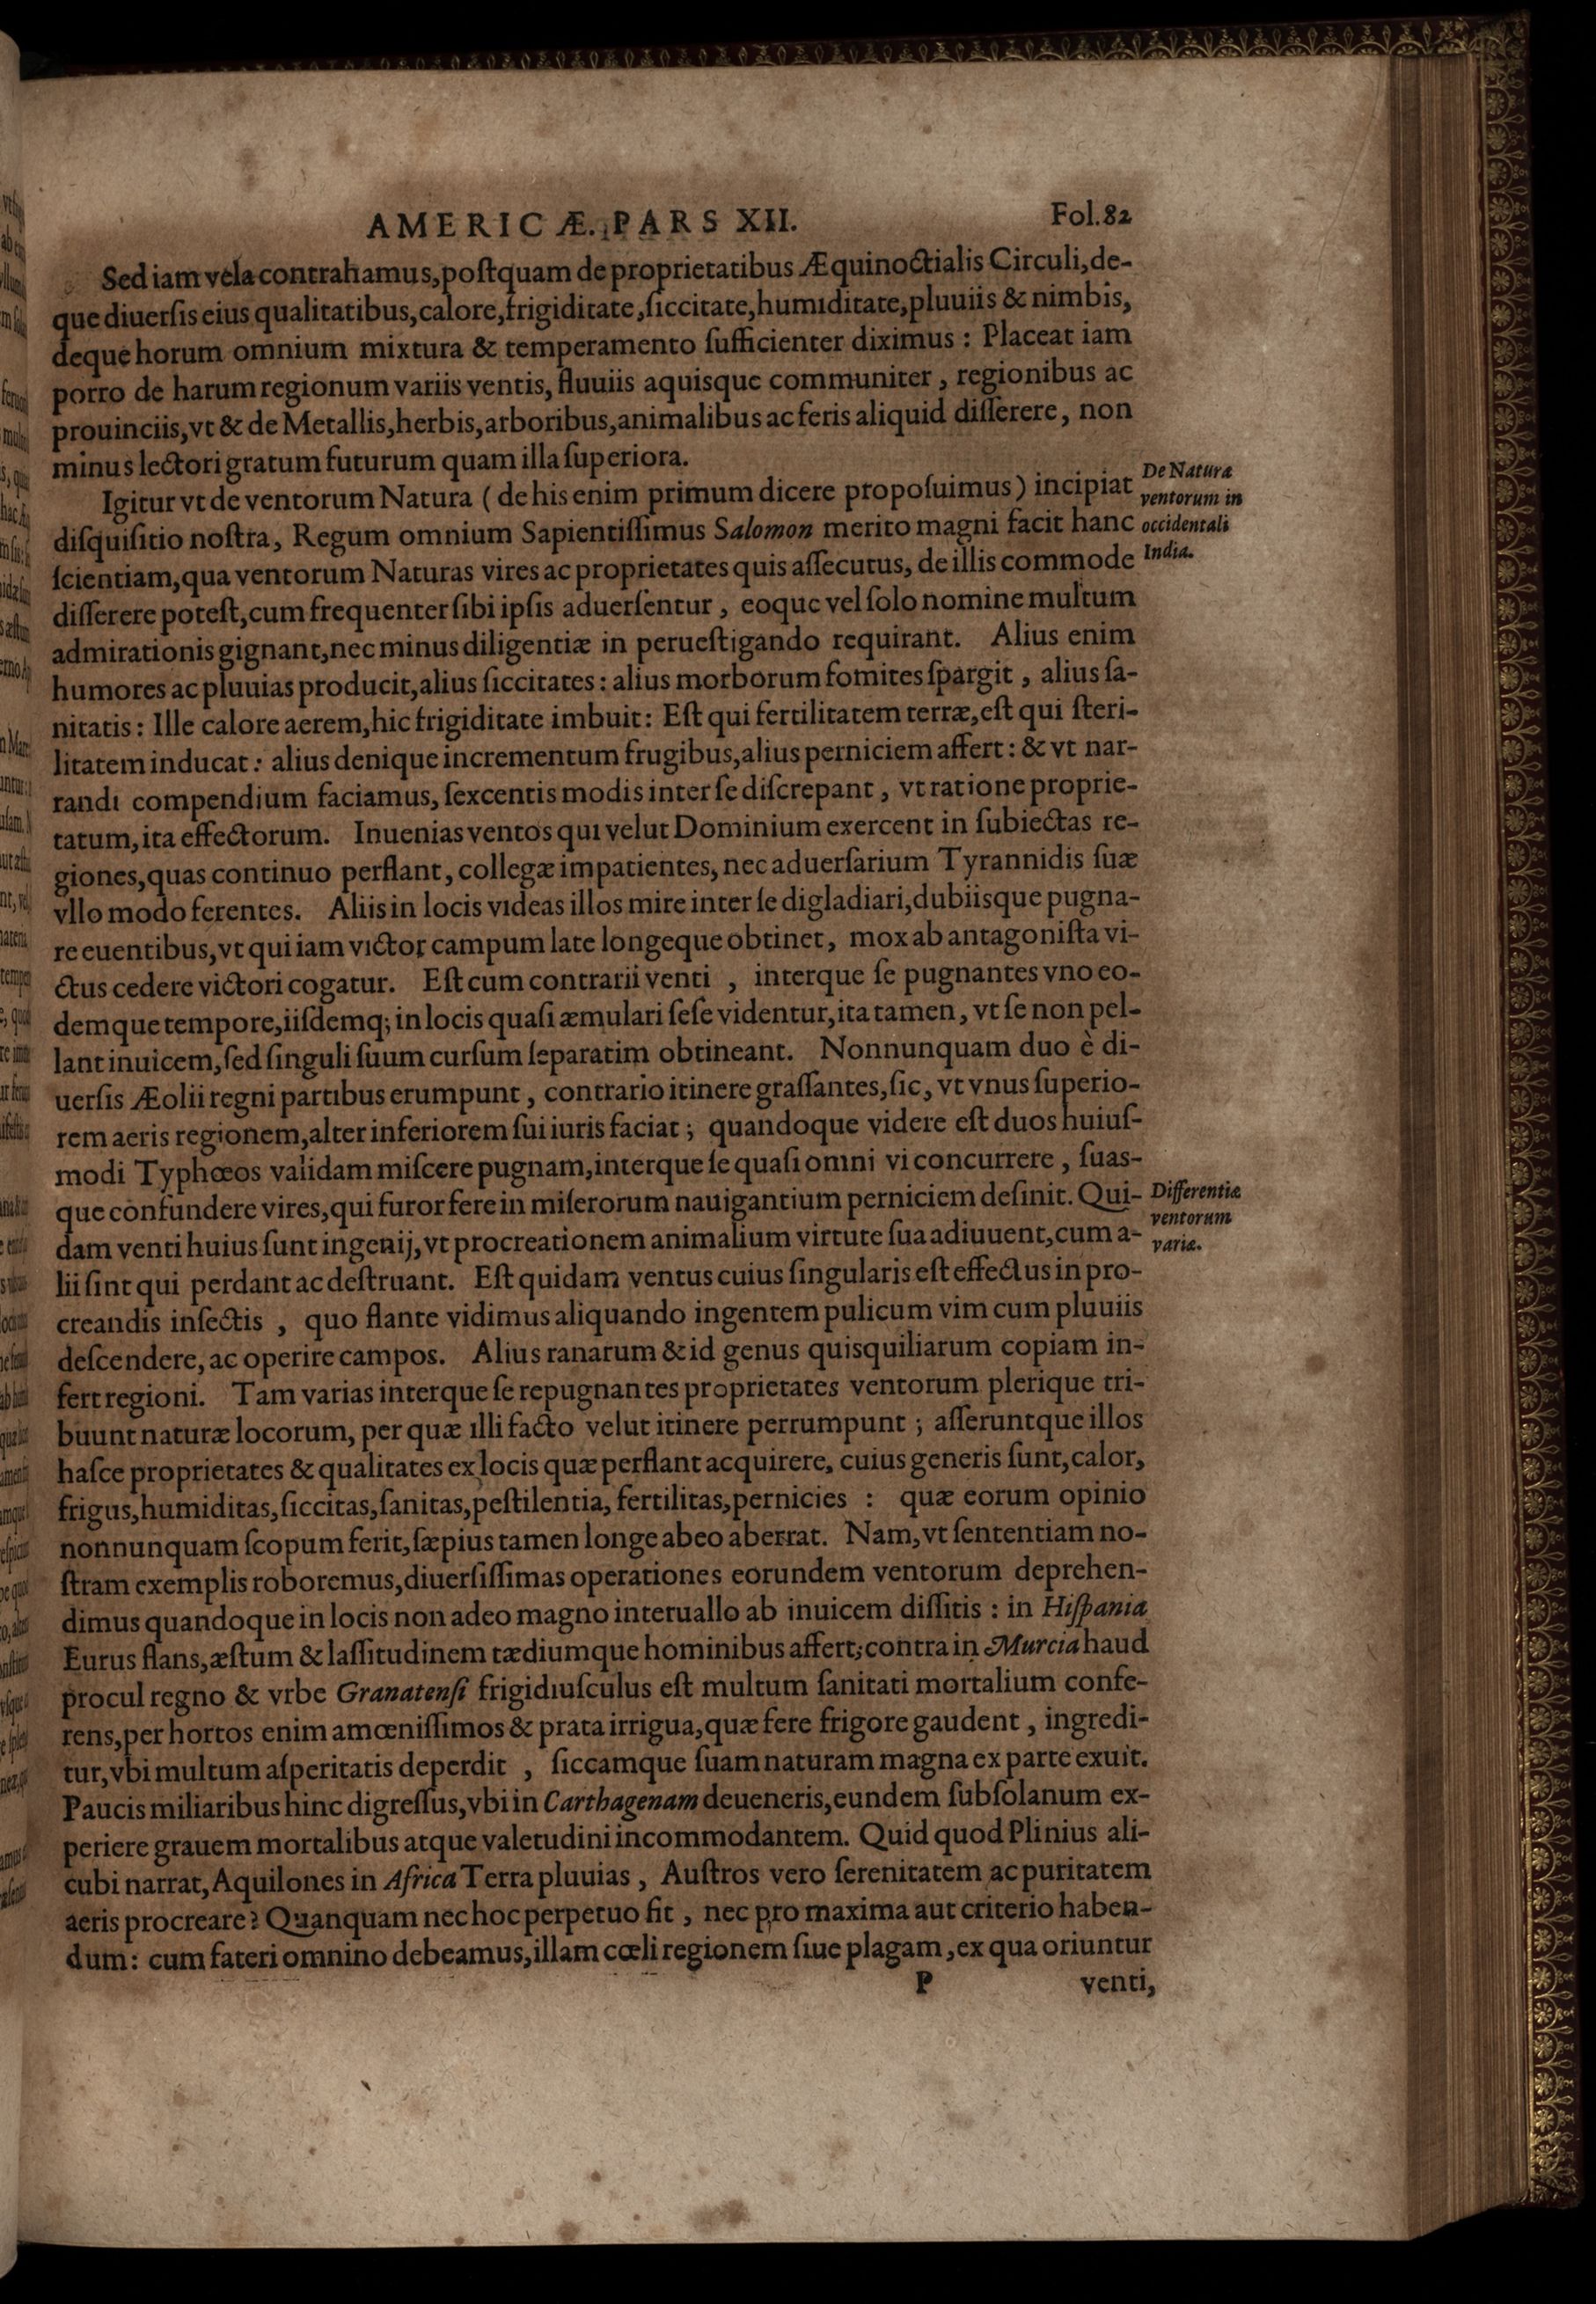 AMERICÆ. PARS XII. Fol.82
Sed iam vela contrahamus, poſtquam de proprietatibus Æquinoctialis Circuli, de-
que diuerſis eius qualitatibus, calore, frigiditate, ſiccitate, humiditate, pluuiis & nimbis,
deque horum omnium mixtura & temperamento ſufficienter diximus : Placeat iam
porro de harum regionum variis ventis, fluuiis aquisque communiter, regionibus ac
prouinciis, vt & de Metallis, herbis, arboribus, animalibus ac feris aliquid diſſerere, non
minus lectori gratum futurum quam illa ſuperiora.
Igitur vt de ventorum Natura ( de his enim primum dicere propoſuimus ) incipiat
De Natura
ventorum in
occidentali
India.
diſquiſitio noſtra, Regum omnium Sapientiſſimus Salomon merito magni facit hanc
ſcientiam, qua ventorum Naturas vires ac proprietates quis aſſecutus, de illis commode
diſſerere poteſt, cum frequenter ſibi ipſis aduerſentur, eoque vel ſolo nomine multum
admirationis gignant, nec minus diligentiæ in perueſtigando requirant. Alius enim
humores ac pluuias producit, alius ſiccitates : alius morborum fomites ſpargit, alius ſa-
nitatis : Ille calore aerem, hic frigiditate imbuit : Eſt qui fertilitatem terræ, eſt qui ſteri-
litatem inducat : alius denique incrementum frugibus, alius perniciem affert : & vt nar-
randi compendium faciamus, ſexcentis modis inter ſe diſcrepant, vt ratione proprie-
tatum, ita effectorum. Inuenias ventos qui velut Dominium exercent in ſubiectas re-
giones, quas continuo perflant, collegæ impatientes, nec aduerſarium Tyrannidis ſuæ
vllo modo ferentes. Aliis in locis videas illos mire inter ſe digladiari, dubiisque pugna-
re euentibus, vt qui iam victor campum late longeque obtinet, mox ab antagoniſta vi-
ctus cedere victori cogatur. Eſt cum contrarii venti, interque ſe pugnantes vno eo-
demque tempore, iiſdemq; in locis quaſi æmulari ſeſe videntur, ita tamen, vt ſe non pel-
lant inuicem, ſed ſinguli ſuum curſum ſeparatim obtineant. Nonnunquam duo è di-
uerſis Æolii regni partibus erumpunt, contrario itinere graſſantes, ſic, vt vnus ſuperio-
rem aeris regionem, alter inferiorem ſui iuris faciat ; quandoque videre eſt duos huiuſ-
modi Typhœos validam miſcere pugnam, interque ſe quaſi omni vi concurrere, ſuas-
que confundere vires, qui furor fere in miſerorum nauigantium perniciem deſinit. Qui-
Differentiæ
ventorum
variæ.
dam venti huius ſunt ingenij, vt procreationem animalium virtute ſua adiuuent, cum a-
lii ſint qui perdant ac deſtruant. Eſt quidam ventus cuius ſingularis eſt effectus in pro-
creandis inſectis, quo flante vidimus aliquando ingentem pulicum vim cum pluuiis
deſcendere, ac operire campos. Alius ranarum & id genus quisquiliarum copiam in-
fert regioni. Tam varias interque ſe repugnantes proprietates ventorum plerique tri-
buunt naturæ locorum, per quæ illi facto velut itinere perrumpunt ; aſſeruntque illos
haſce proprietates & qualitates ex locis quæ perflant acquirere, cuius generis ſunt, calor,
frigus, humiditas, ſiccitas, ſanitas, peſtilentia, fertilitas, pernicies : quæ eorum opinio
nonnunquam ſcopum ferit, ſæpius tamen longe ab eo aberrat. Nam, vt ſententiam no-
ſtram exemplis roboremus, diuerſiſſimas operationes eorundem ventorum deprehen-
dimus quandoque in locis non adeo magno interuallo ab inuicem diſſitis : in Hiſpania
Eurus flans, æſtum & laſſitudinem tædiumque hominibus affert; contra in Murcia haud
procul regno & vrbe Granatenſi frigidiuſculus eſt multum ſanitati mortalium confe-
rens, per hortos enim amœniſſimos & prata irrigua, quæ fere frigore gaudent, ingredi-
tur, vbi multum aſperitatis deperdit, ſiccamque ſuam naturam magna ex parte exuit.
Paucis miliaribus hinc digreſſus, vbi in Carthagenam deueneris, eundem ſubſolanum ex-
periere grauem mortalibus atque valetudini incommodantem. Quid quod Plinius ali-
cubi narrat, Aquilones in Africa Terra pluuias, Auſtros vero ſerenitatem ac puritatem
aeris procreare? Quanquam nec hoc perpetuo fit, nec pro maxima aut criterio haben-
dum : cum fateri omnino debeamus, illam cœli regionem ſiue plagam, ex qua oriuntur
P venti,